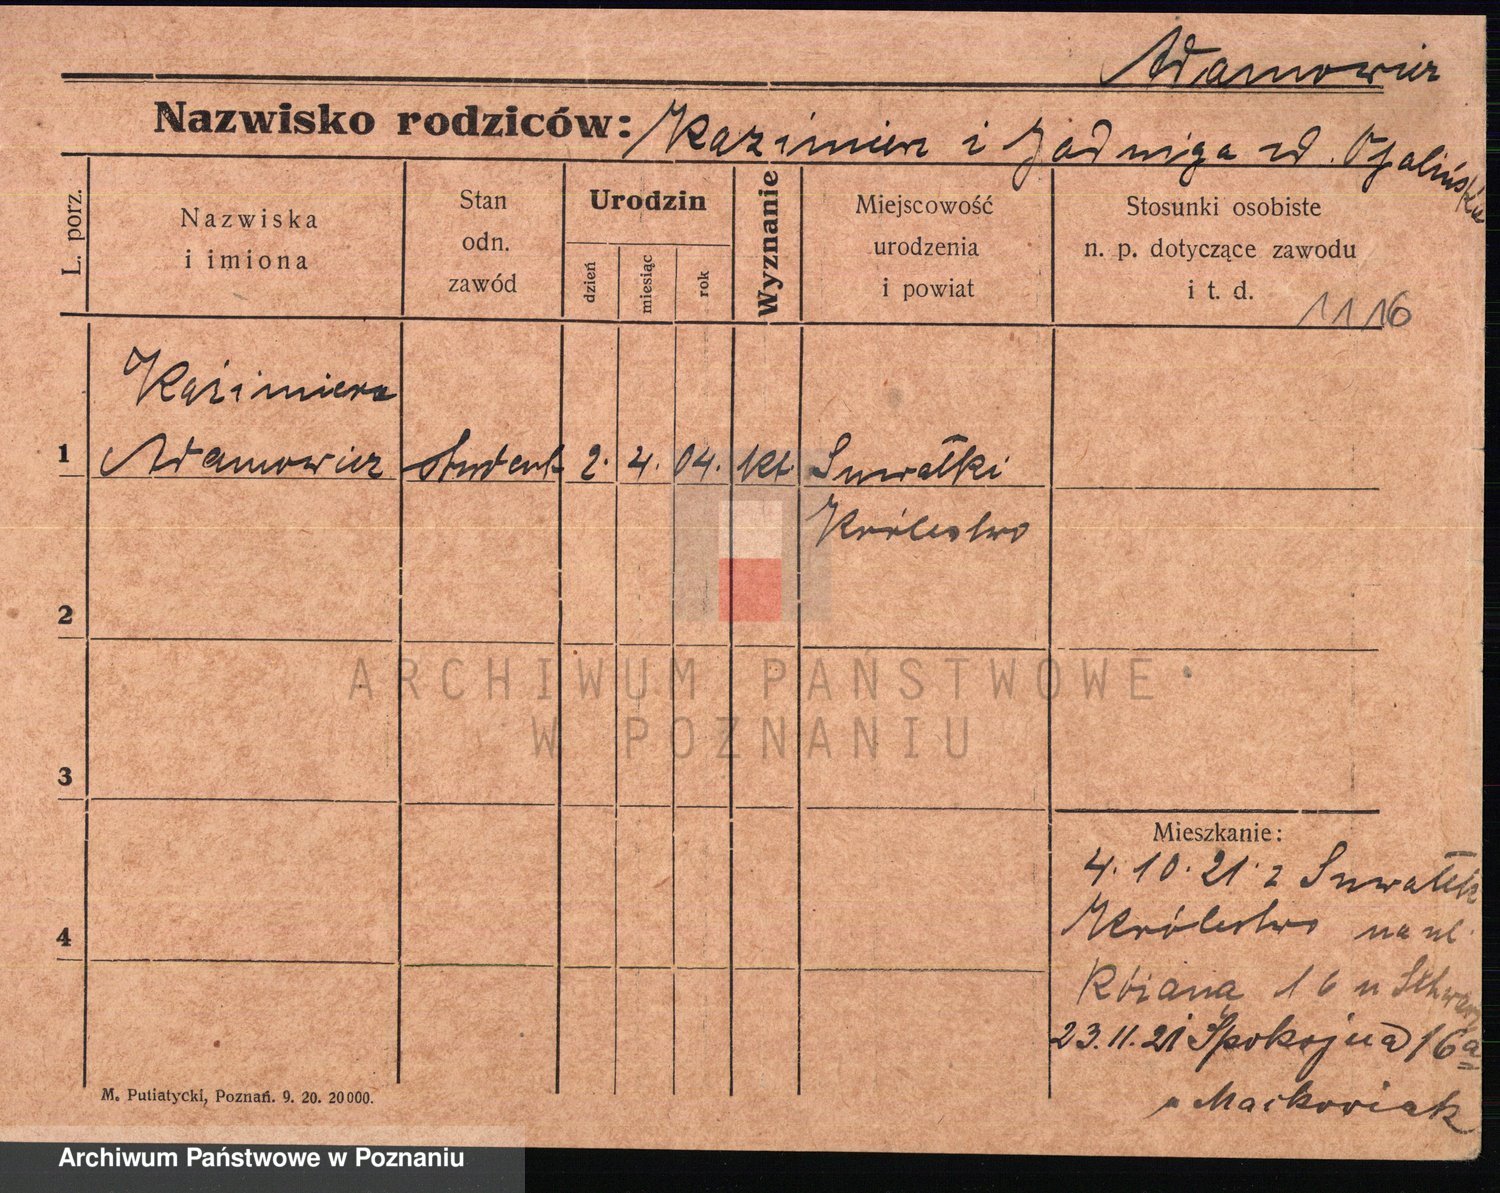 Adamowicz
Nazwisko rodziców: Kazimierz i Jadwiga zd. Opalińska
L. porz.
Nazwiska
i imiona
Stan
odn.
zawód
Urodzin
dzień
miesiąc
rok
Wyznanie
Miejscowość
urodzenia
i powiat
Stosunki osobiste
n. p. dotyczące zawodu
i t. d.
1116
Kazimierz
1 Adamowicz student 2. 4. 04. kt. Suwałki
Królestwo
2
3
4
Mieszkanie:
4. 10. 21 z Suwałek
Królestwo na ul.
Różana 16 u
23. 11. 21 Spokojna 16a
u Maćkowiak
M. Putiatycki, Poznań. 9. 20. 20000.
ARCHIWUM PAŃSTWOWE
W POZNANIU
Archiwum Państwowe w Poznaniu